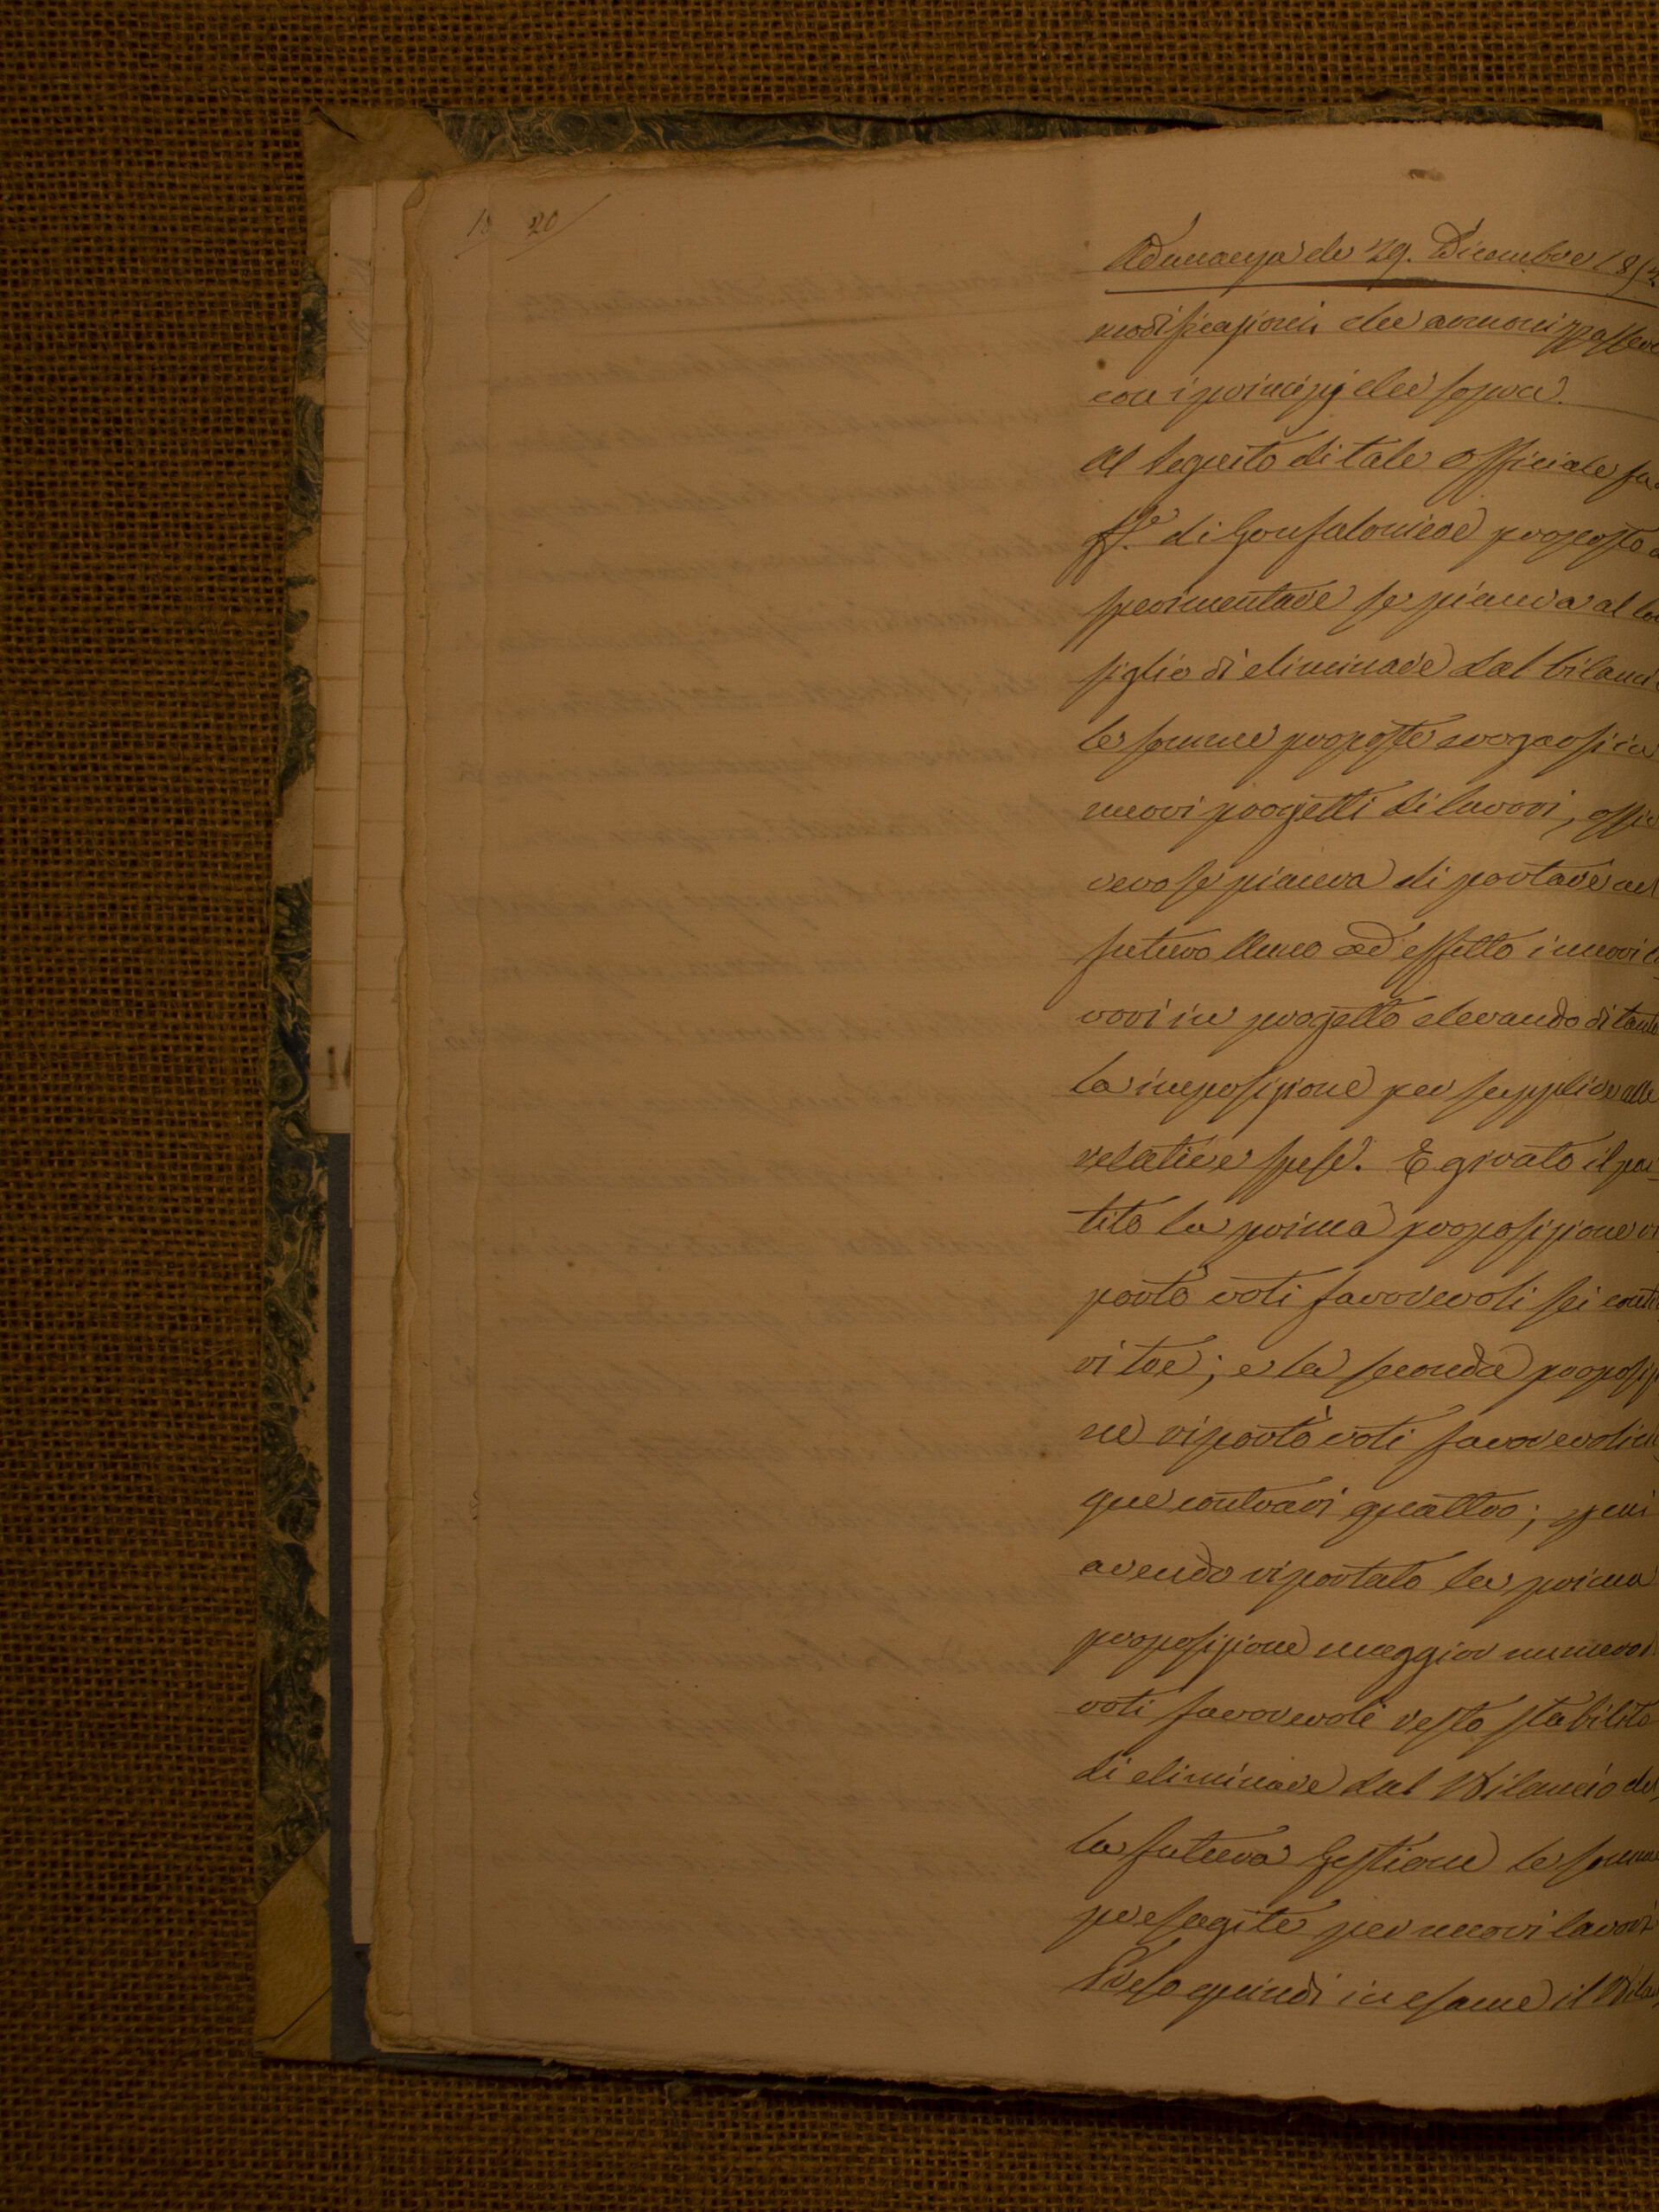 20
Adunanza de 29. Dicembre 18
modificazioni che armonizzassero
con i principj che sopra.
Al seguito di tale officiale
ff.e di Gonfaloniere proposto
sperimentare se piaceva al
siglio di eliminare dal bilanci
le somme proposte erogarsi in
nuovi progetti di lavori, ossi
vero se piaceva di portare nel
futuro Anno ad effetto i nuovi la
vori in progetto elevando di tanto
la imposizione per supplire alle
relative spese. E girato il par
tito la prima proposizione ri
portò voti favorevoli sei contra
ri tre; e la seconda proposizio
ne riportò voti favorevoli cin
que contrari quattro; e
avendo riportato la prima
proposizione maggior numero di
voti favorevoli restò stabilito
di eliminare dal Bilancio del
la futura Gestione le somme
presagite per nuovi lavori
Preso quindi in esame il Bilan